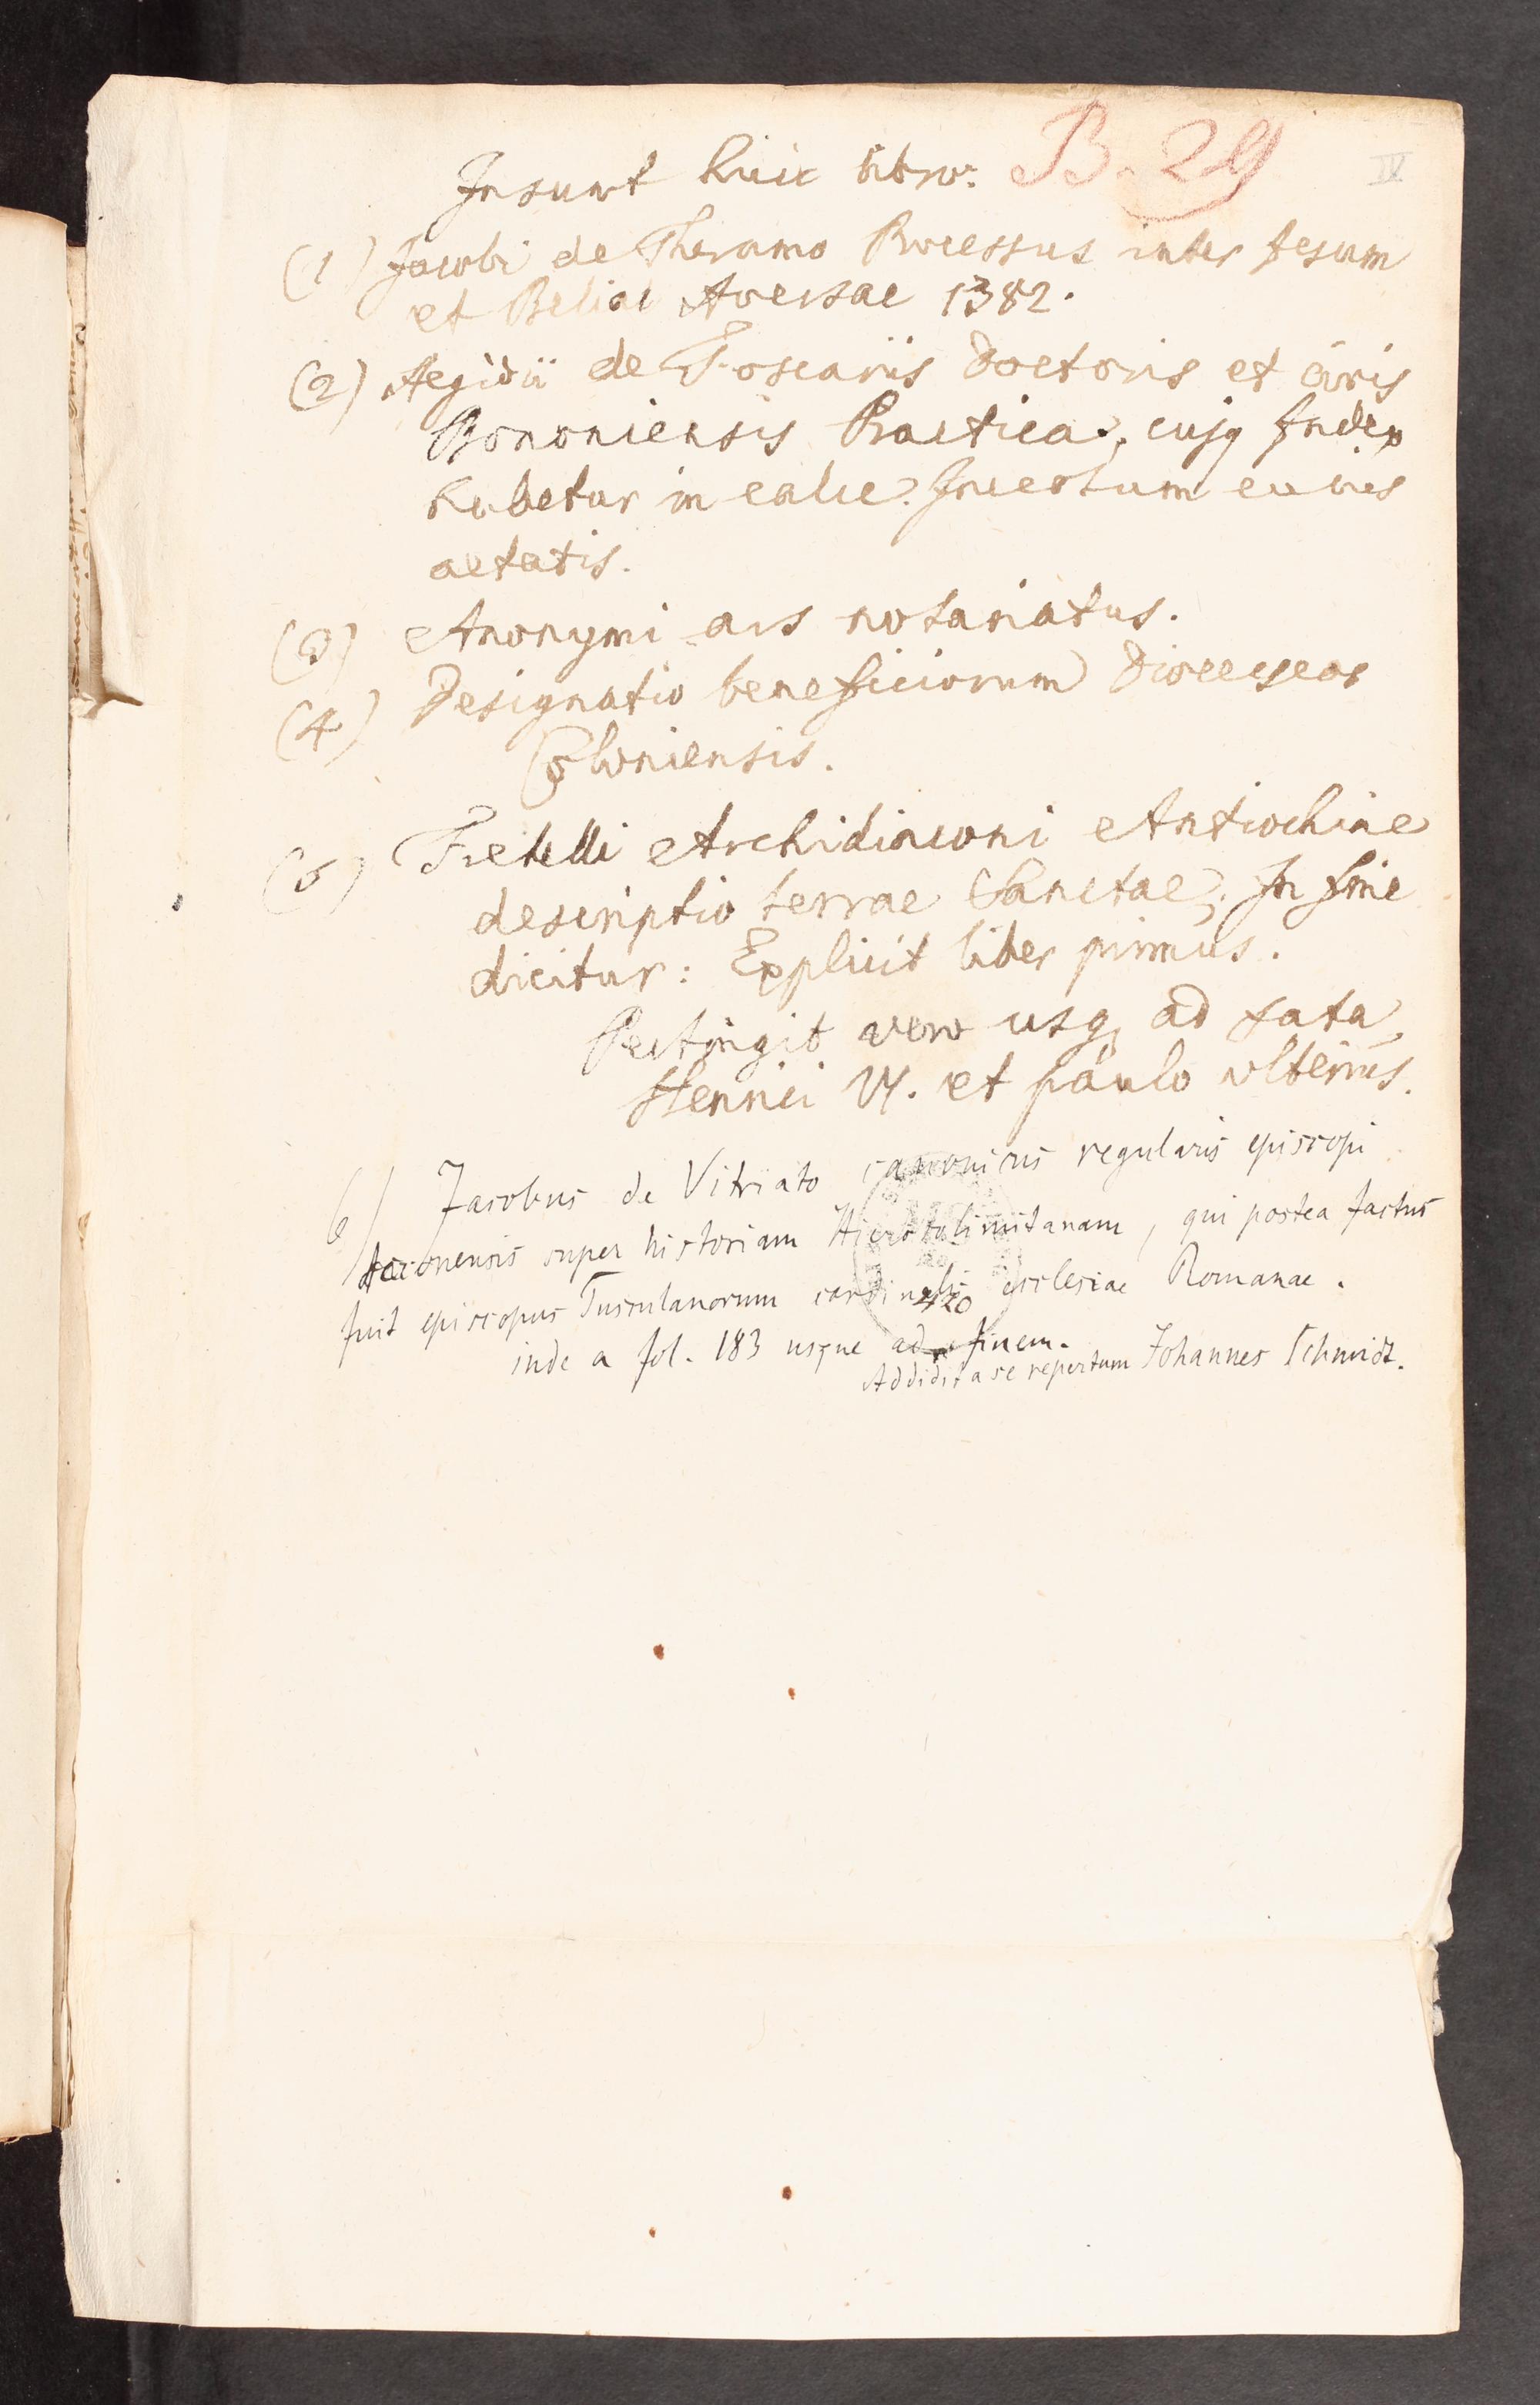 Insunt huic libro: B. 29
IV
(1) Jacobi de Theramo Processus inter Jesum
et Belial Aversae 1382.
(2) Aegidii de Foscariis Doctoris et civis
Bononiensis Practica, cujq Index
habetur in calce. Incertum cujus
aetatis.
(3) Anonymi ars notariatus.
(4) Designatio beneficiorum Dioeceseos
Coloniensis.
(5) Fretelli Archidiaconi Antiochiae
descriptio terrae Sanctae. In fine
dicitur: Explicit liber primus.
Pertingit vero usq ad fata
Henrici VI. et paulo ulterius.
6) Jacobus de Vitriato canonicus regularis episcopi
Acconensis super historiam Hierosolimitanam, qui postea factus
fuit episcopus Tusculanorum cardinalis ecclesiae Romanae.
420
inde a fol. 183 usque ad finem.
Addidit a se repertum Johannes Schmidt.